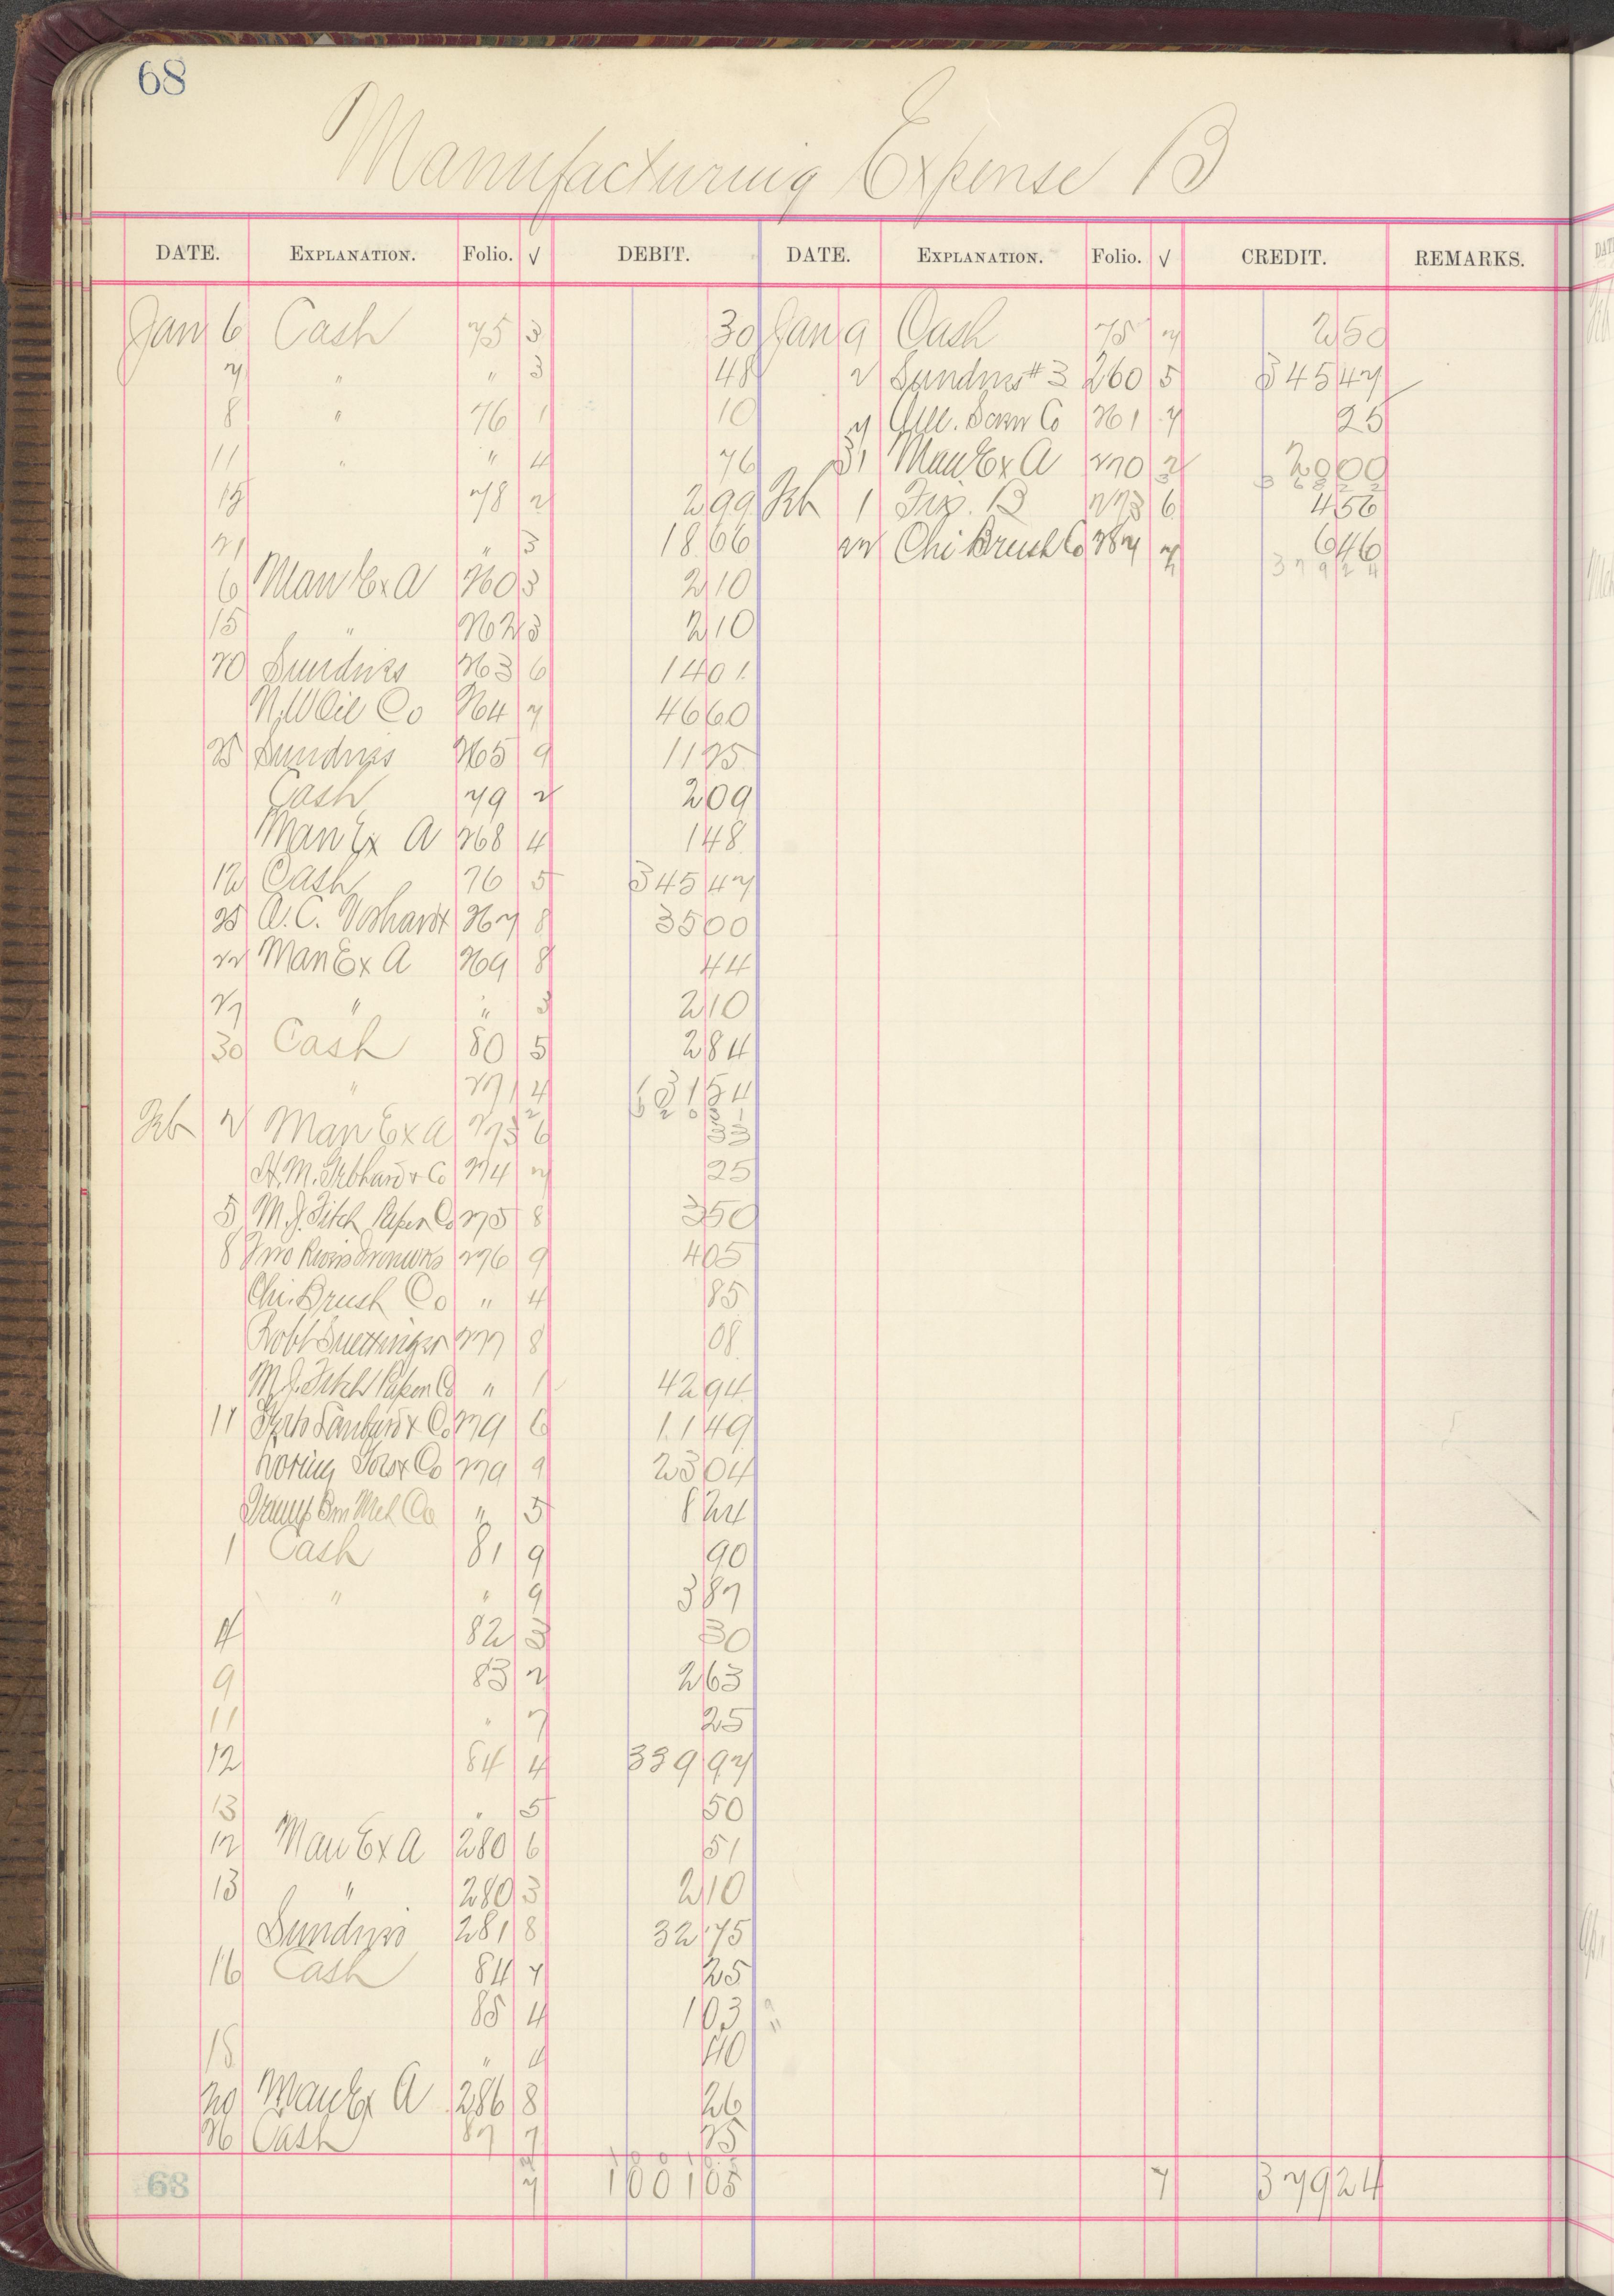 68
Manufacturing Expense B
DATE. EXPLANATION. Folio. √ DEBIT. DATE. EXPLANATION. Folio. √ CREDIT. REMARKS.
Jan 6 Cash 75 3 30 Jan 9 Cash 75 7 2 50
7 " " 3 48 2 Sundries #3 260 5 345 47
8 " 76 1 10 7 Co 261 7 25
11 " " 4 76 31 Man Ex A 270 2 20 00
3 6 8 2 2
15 78 2 2 99 Feb 1 B 273 6 4 56
21 " 3 18 66 22 Chi Brush Co 287 7 6 46
3 7 9 2 4
6 Man Ex A 260 3 2 10
15 " 262 3 2 10
20 Sundries 263 6 14 01
N.W Oil Co 264 7 46 60
25 Sundries 265 9 11 25
Cash 79 2 2 09
Man Ex A 268 4 1 48
12 Cash 76 5 345 47
25 A.C. 267 8 35 00
22 Man Ex A 269 8 44
27 " " 3 2 10
30 Cash 80 5 2 84
" 271 4 131 54
Feb 2 Man Ex A 273 6 33
H.M. & Co 274 7 25
5 M.J. Fitch Paper Co 275 8 3 50
8 276 9 4 05
Chi. Brush Co " 4 85
Robt 277 8 08
M.J. Fitch Paper Co " 1 42 94
11 & Co 279 6 11 49
Co 279 9 23 04
Co " 5 8 24
1 Cash 81 9 90
" " 9 3 87
4 82 3 30
9 83 2 2 63
11 " 7 25
12 84 4 339 97
13 " 5 50
12 Man Ex A 280 6 51
13 " 280 3 2 10
Sundries 281 8 32 75
16 Cash 84 7 25
85 4 1 03
18 " 4 40
20 Man Ex A 286 8 26
26 Cash 87 7 25
68 7 1001 05 7 379 24